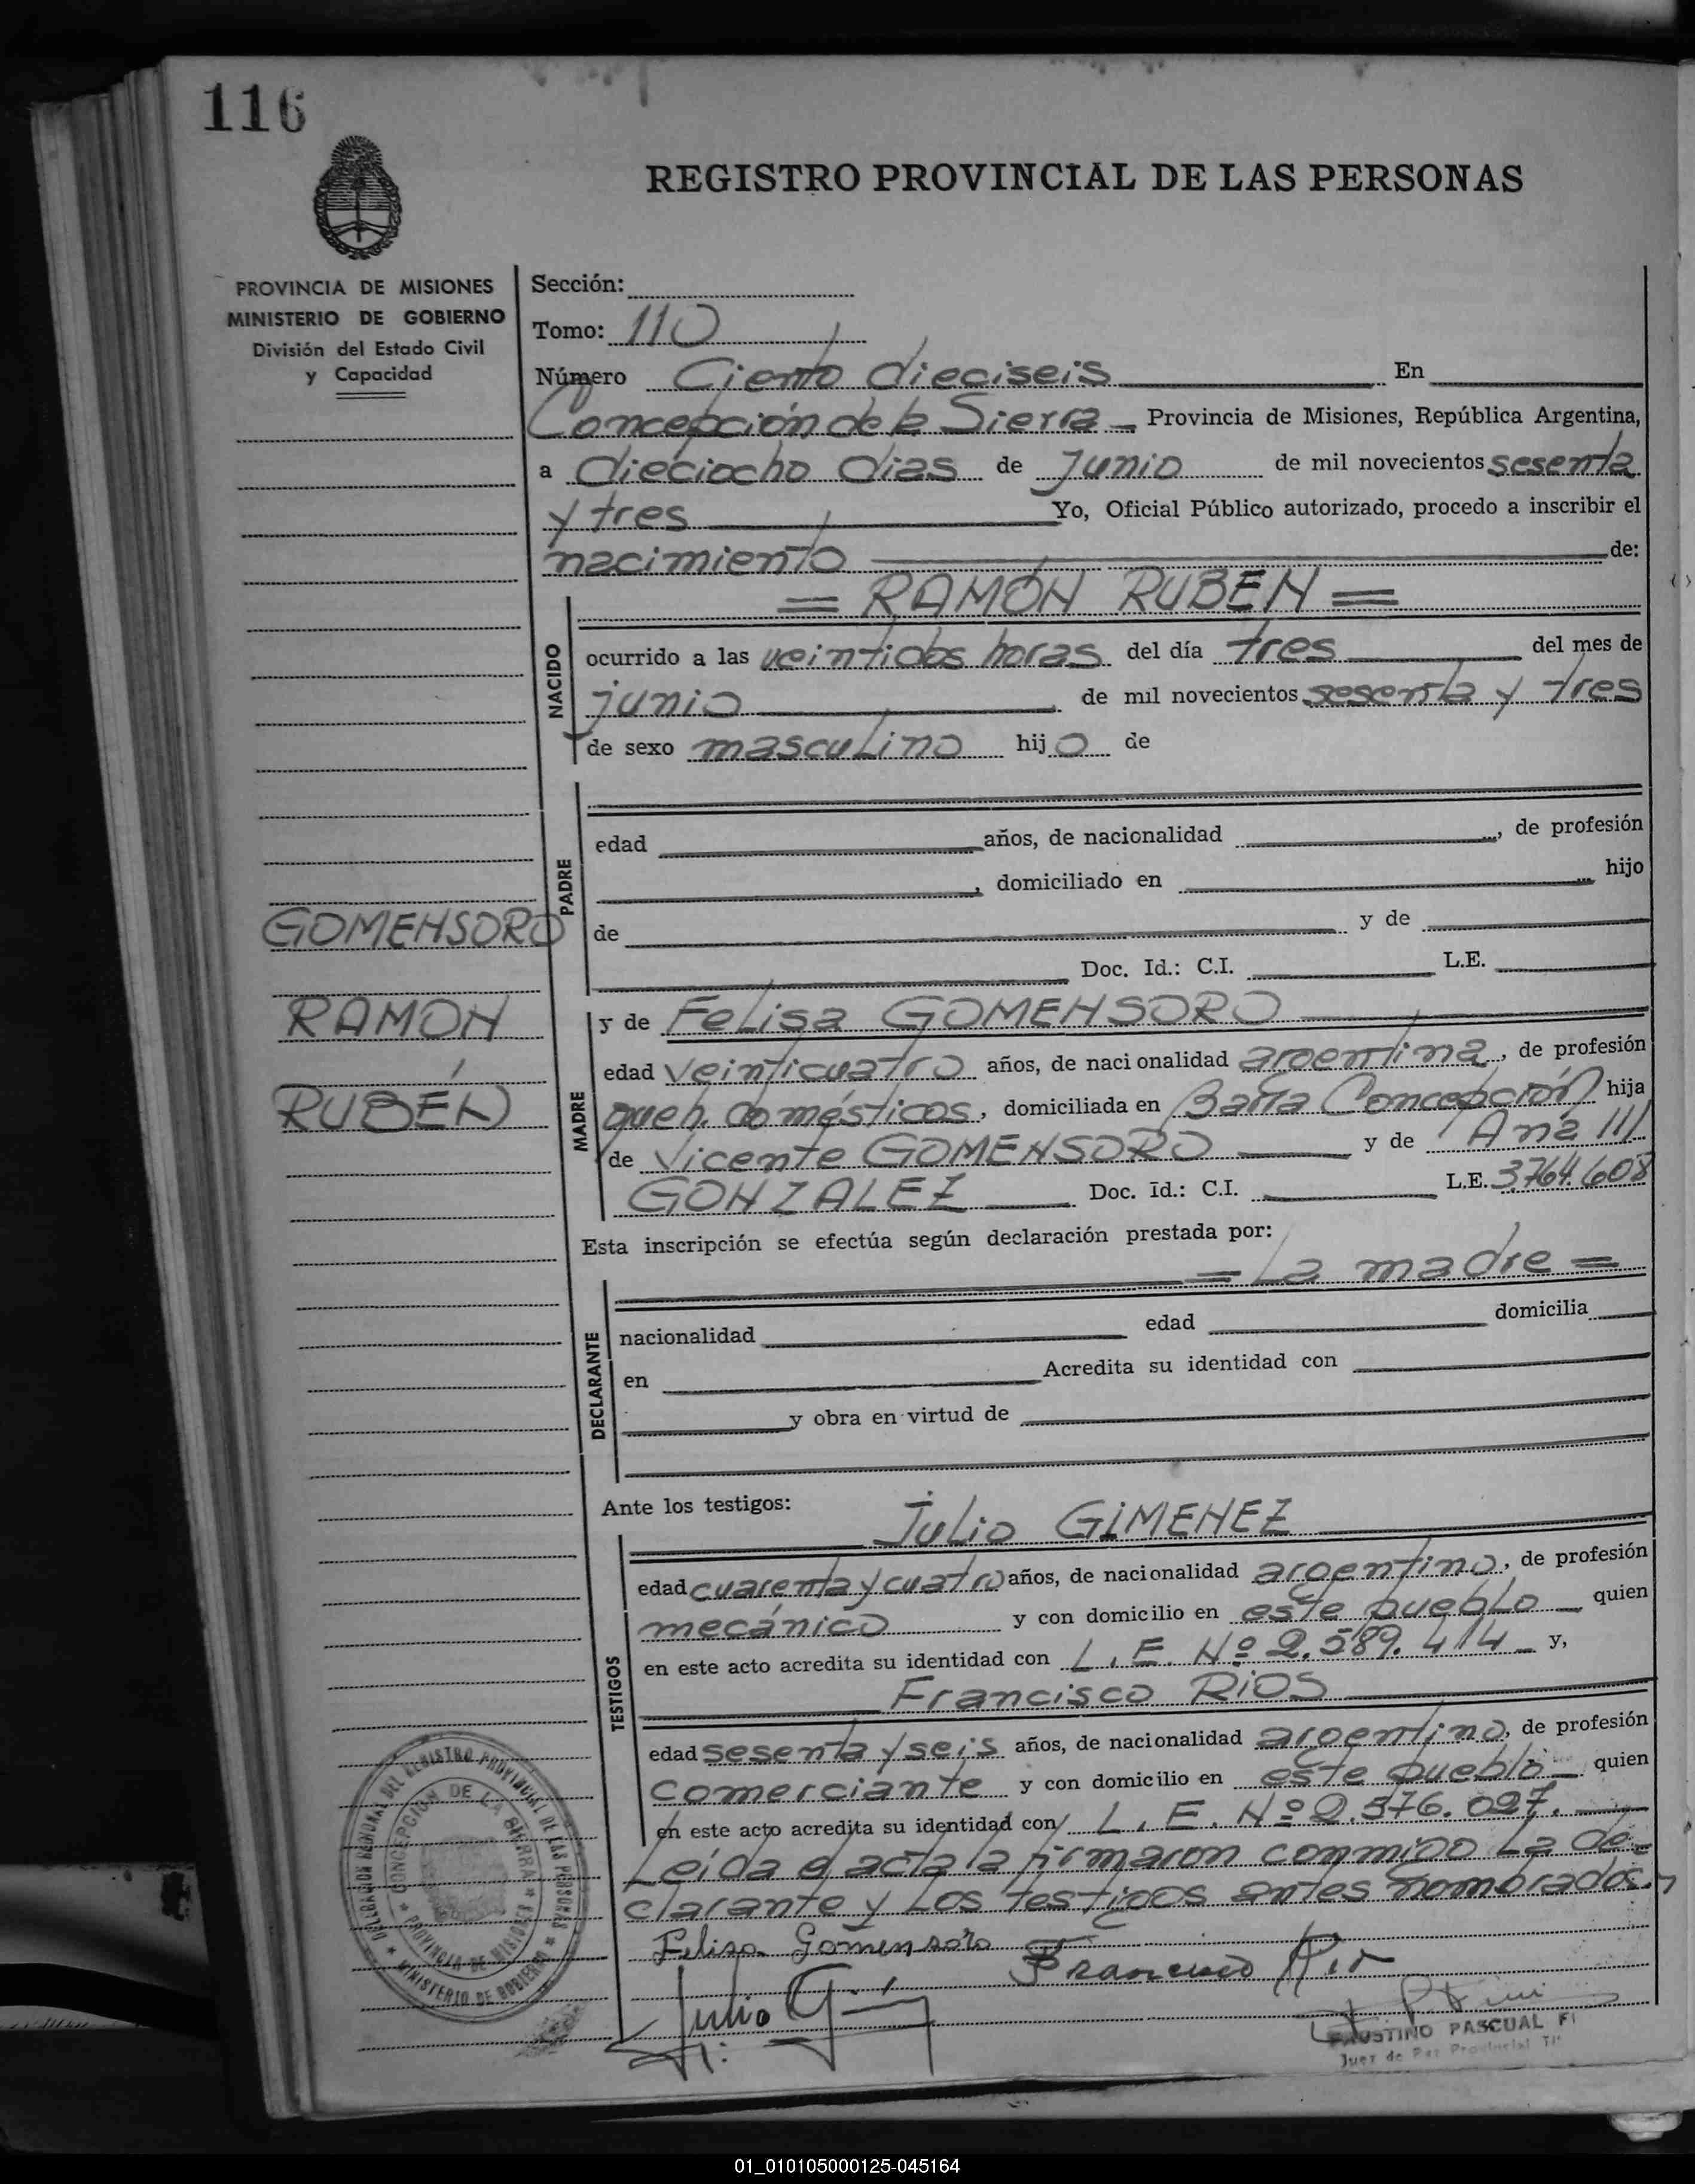 116
REGISTRO PROVINCIAL DE LAS PERSONAS
PROVINCIA DE MISIONES
MINISTERIO DE GOBIERNO
División del Estado Civil
y Capacidad
Sección:
Tomo: 110
Número Ciento dieciseis En
Concepción de la Sierra Provincia de Misiones, República Argentina,
a dieciocho dias de Junio de mil novecientos sesenta
y tres Yo, Oficial Público autorizado, procedo a inscribir el
nacimiento de:
= RAMÓN RUBEN =
NACIDO
ocurrido a las veintidos horas del día tres del mes de
junio de mil novecientos sesenta y tres
de sexo masculino hijo de
PADRE
edad años, de nacionalidad , de profesión
, domiciliado en hijo
de y de
Doc. Id.: C.I. L.E.
GOMENSORO
RAMON
RUBÉN
MADRE
y de Felisa GOMENSORO
edad veinticuatro años, de nacionalidad argentina, de profesión
queh. domésticos, domiciliada en Barra Concepción hija
de Vicente GOMENSORO y de Ana ///
GONZALEZ Doc. Id.: C.I. L.E. 3.764.608
Esta inscripción se efectúa según declaración prestada por:
= La madre =
DECLARANTE
nacionalidad edad domicilia
en Acredita su identidad con
y obra en virtud de
Ante los testigos:
Julio GIMENEZ
TESTIGOS
edad cuarenta y cuatro años, de nacionalidad argentino, de profesión
mecánico y con domicilio en este pueblo quien
en este acto acredita su identidad con L. E. Nº 2.589.414 y,
Francisco RIOS
edad sesenta y seis años, de nacionalidad argentino, de profesión
comerciante y con domicilio en este pueblo quien
en este acto acredita su identidad con L. E. Nº 2.576.027.
Leida el acta la firmaron conmigo La de-
clarante y Los testigos antes nombrados.
Felisa Gomensoro Francisco Rios
Julio
DELEGACION REGIONAL DEL REGISTRO PROVINCIAL DE LAS PERSONAS
* MINISTERIO DE GOBIERNO *
CONCEPCION DE LA SIERRA
* PROVINCIA DE MISIONES *
FAUSTINO PASCUAL
Juez de Paz Provincial
01_010105000125-045164